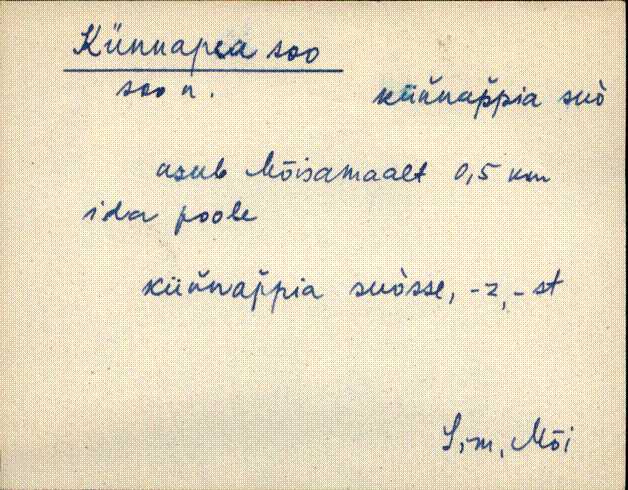 Künnapea soo
soo n. küǹnap̀pia suò
asub Mõisamaalt 0,5 km
ida poole
küǹnap̀pia suòsse, -z, -st
S,-m, Mõi